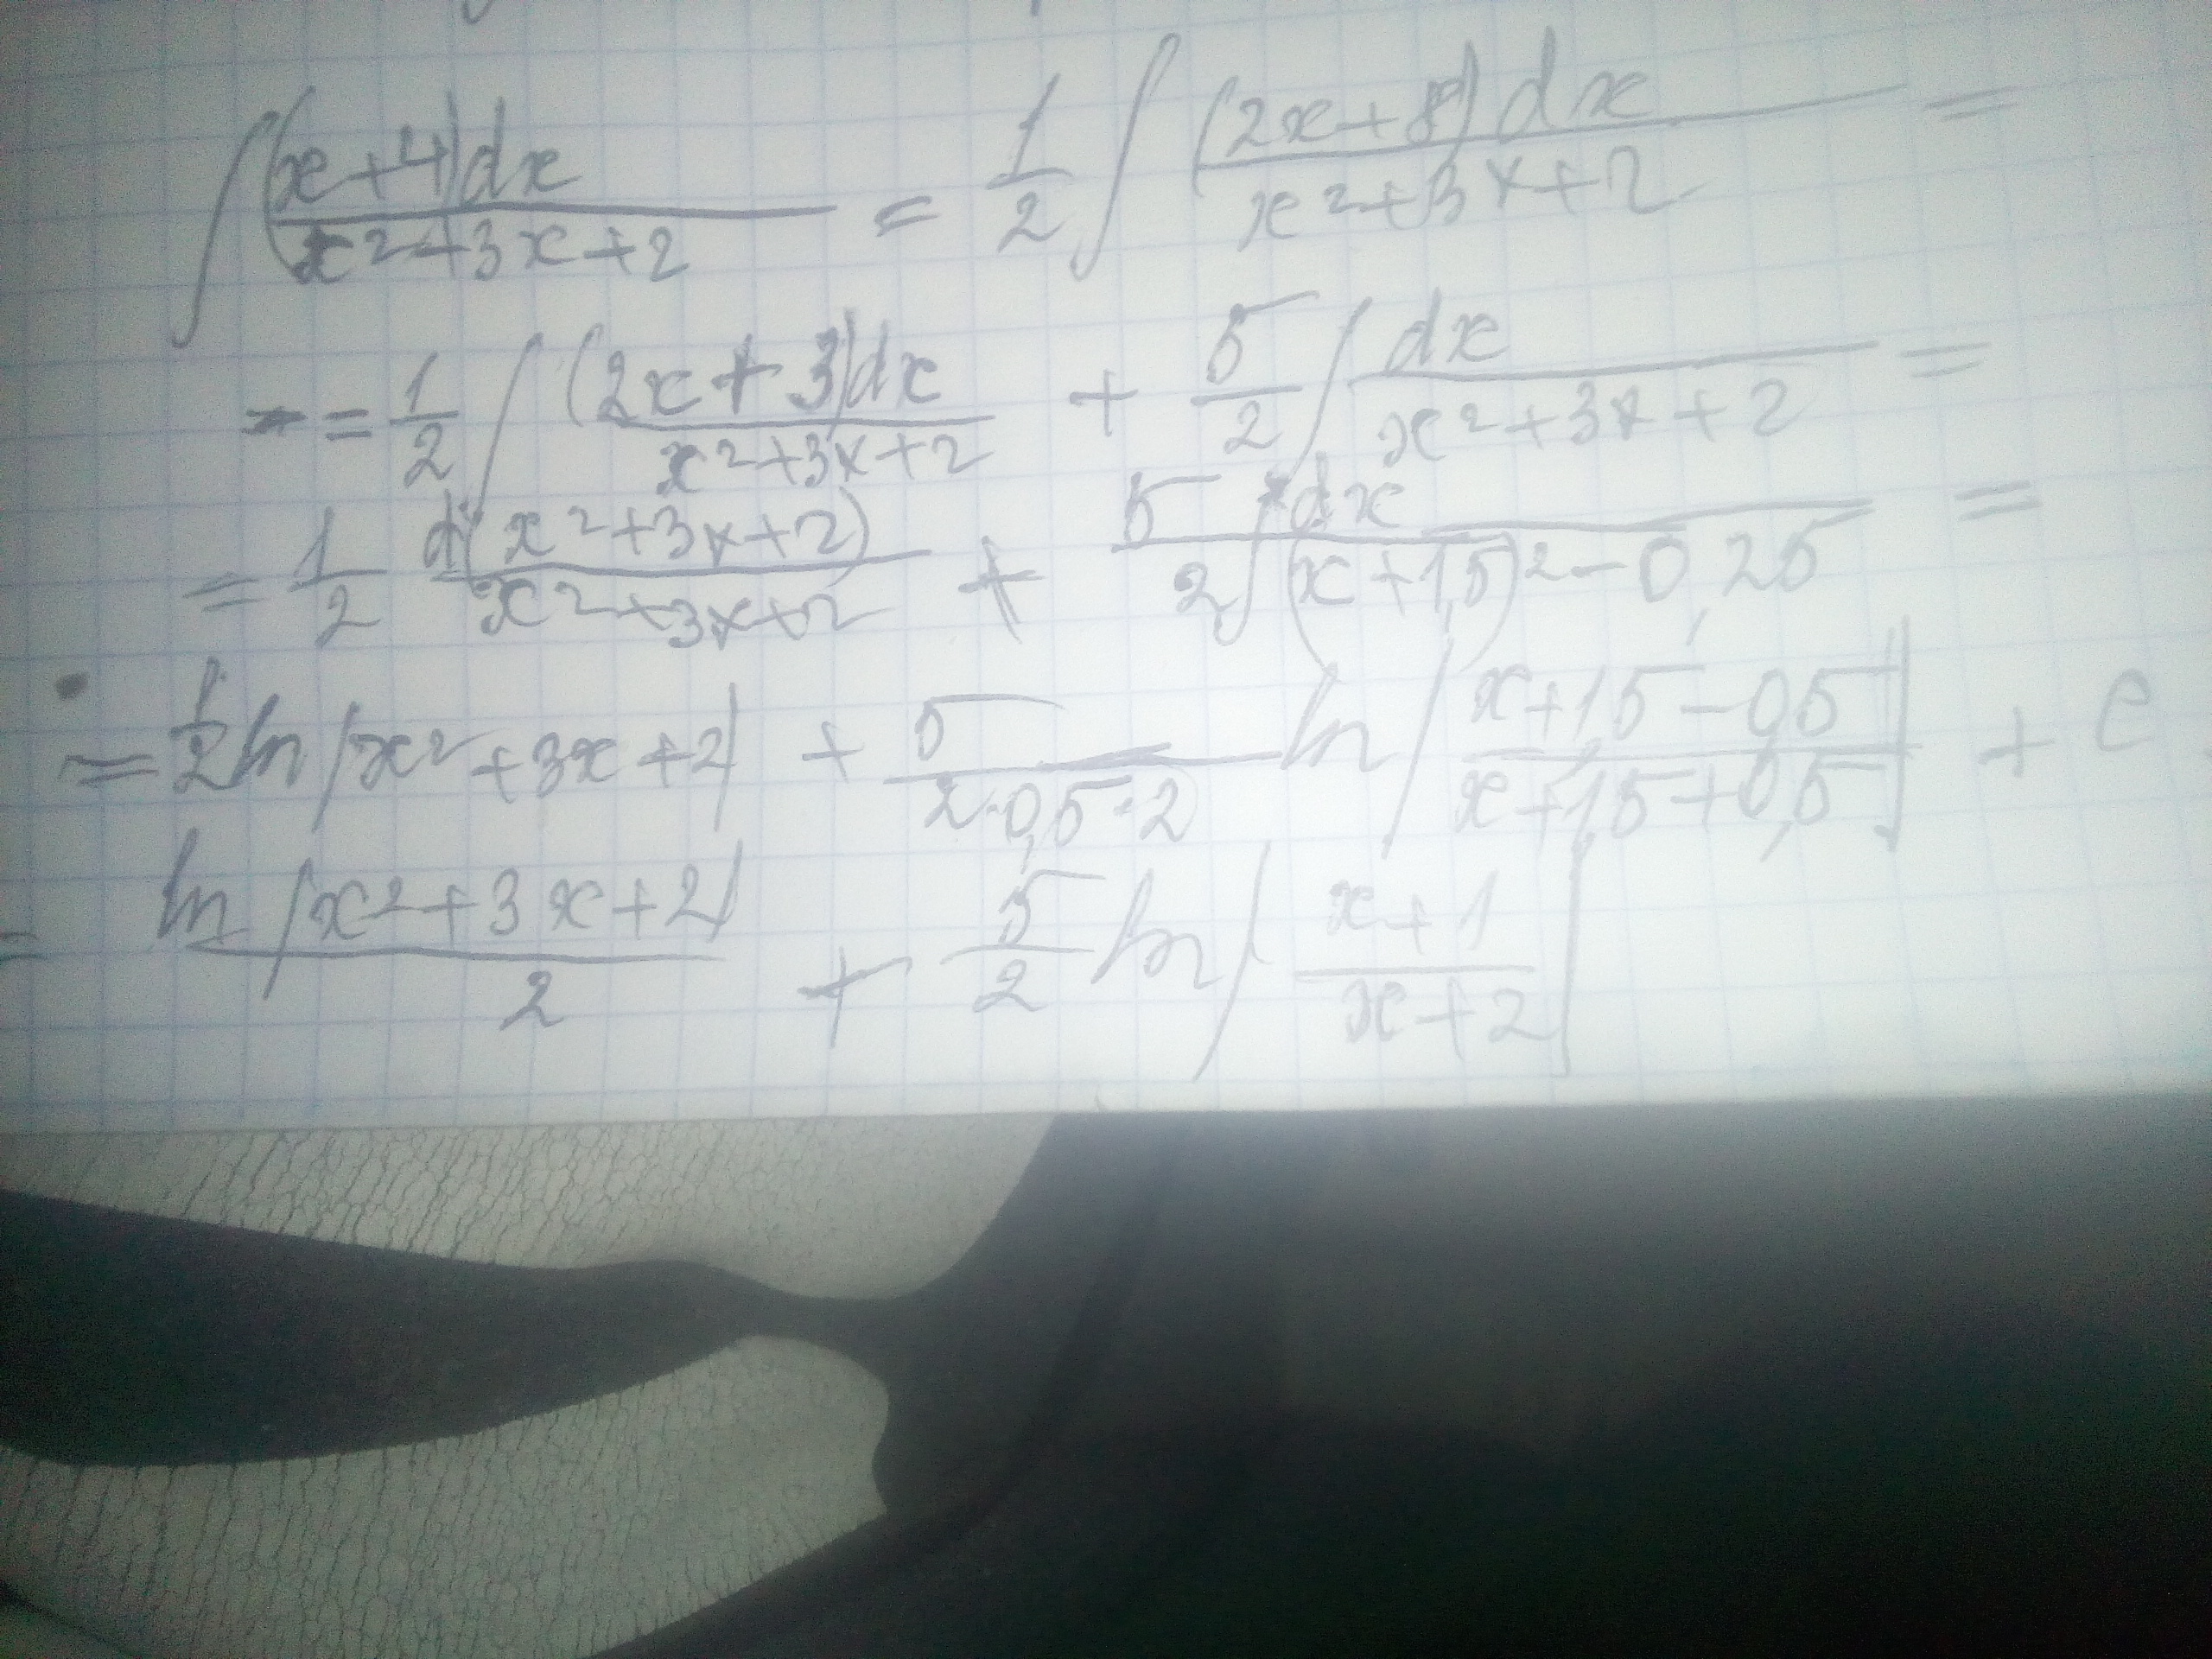 ∫ (x+4)dx / (x²+3x+2) = 1/2 ∫ (2x+8)dx / (x²+3x+2) =
= 1/2 ∫ (2x+3)dx / (x²+3x+2) + 5/2 ∫ dx / (x²+3x+2) =
= 1/2 d(x²+3x+2) / (x²+3x+2) + 5/2 ∫ dx / ((x+1,5)²-0,25) =
= 1/2 ln|x²+3x+2| + 5/(2·0,5·2) ln|(x+1,5-0,5)/(x+1,5+0,5)| + C
= ln|x²+3x+2| / 2 + 5/2 ln|(x+1)/(x+2)|